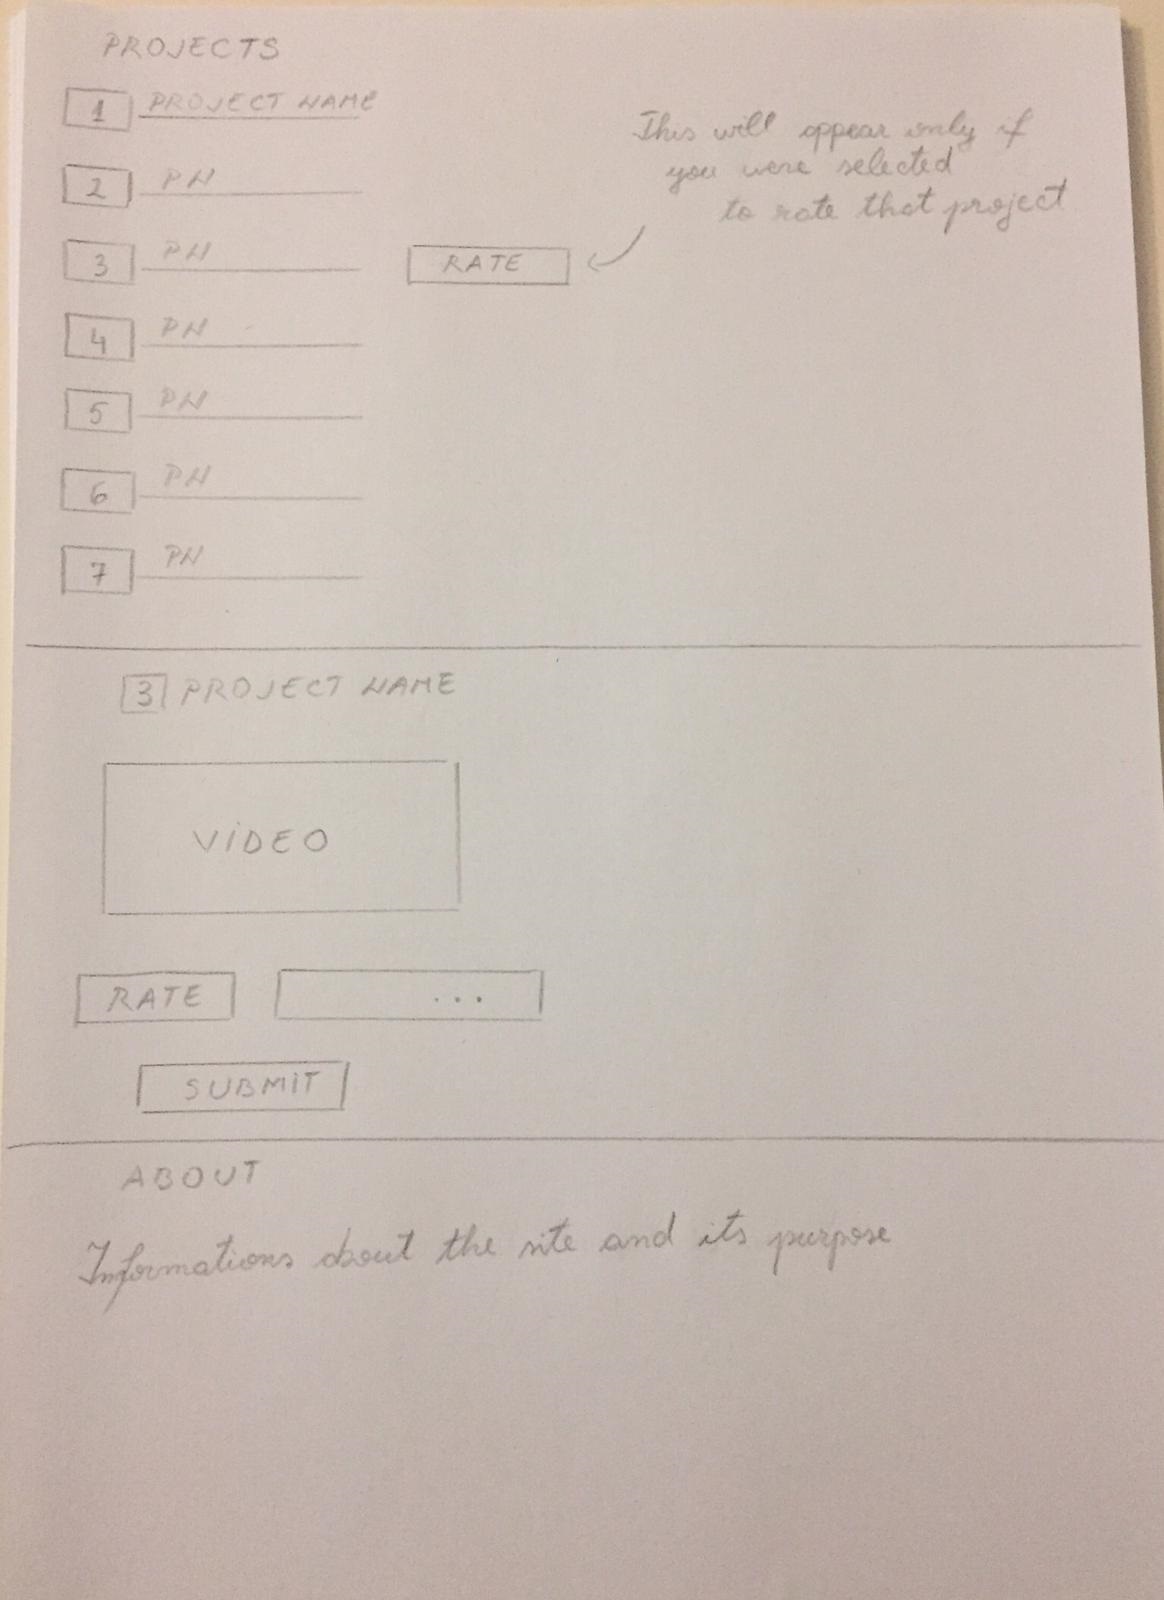 PROJECTS
1 PROJECT NAME
This will appear only if
you were selected
to rate that project
2 PN
3 PN RATE
4 PN
5 PN
6 PN
7 PN
3 PROJECT NAME
VIDEO
RATE ...
SUBMIT
ABOUT
Informations about the site and its purpose